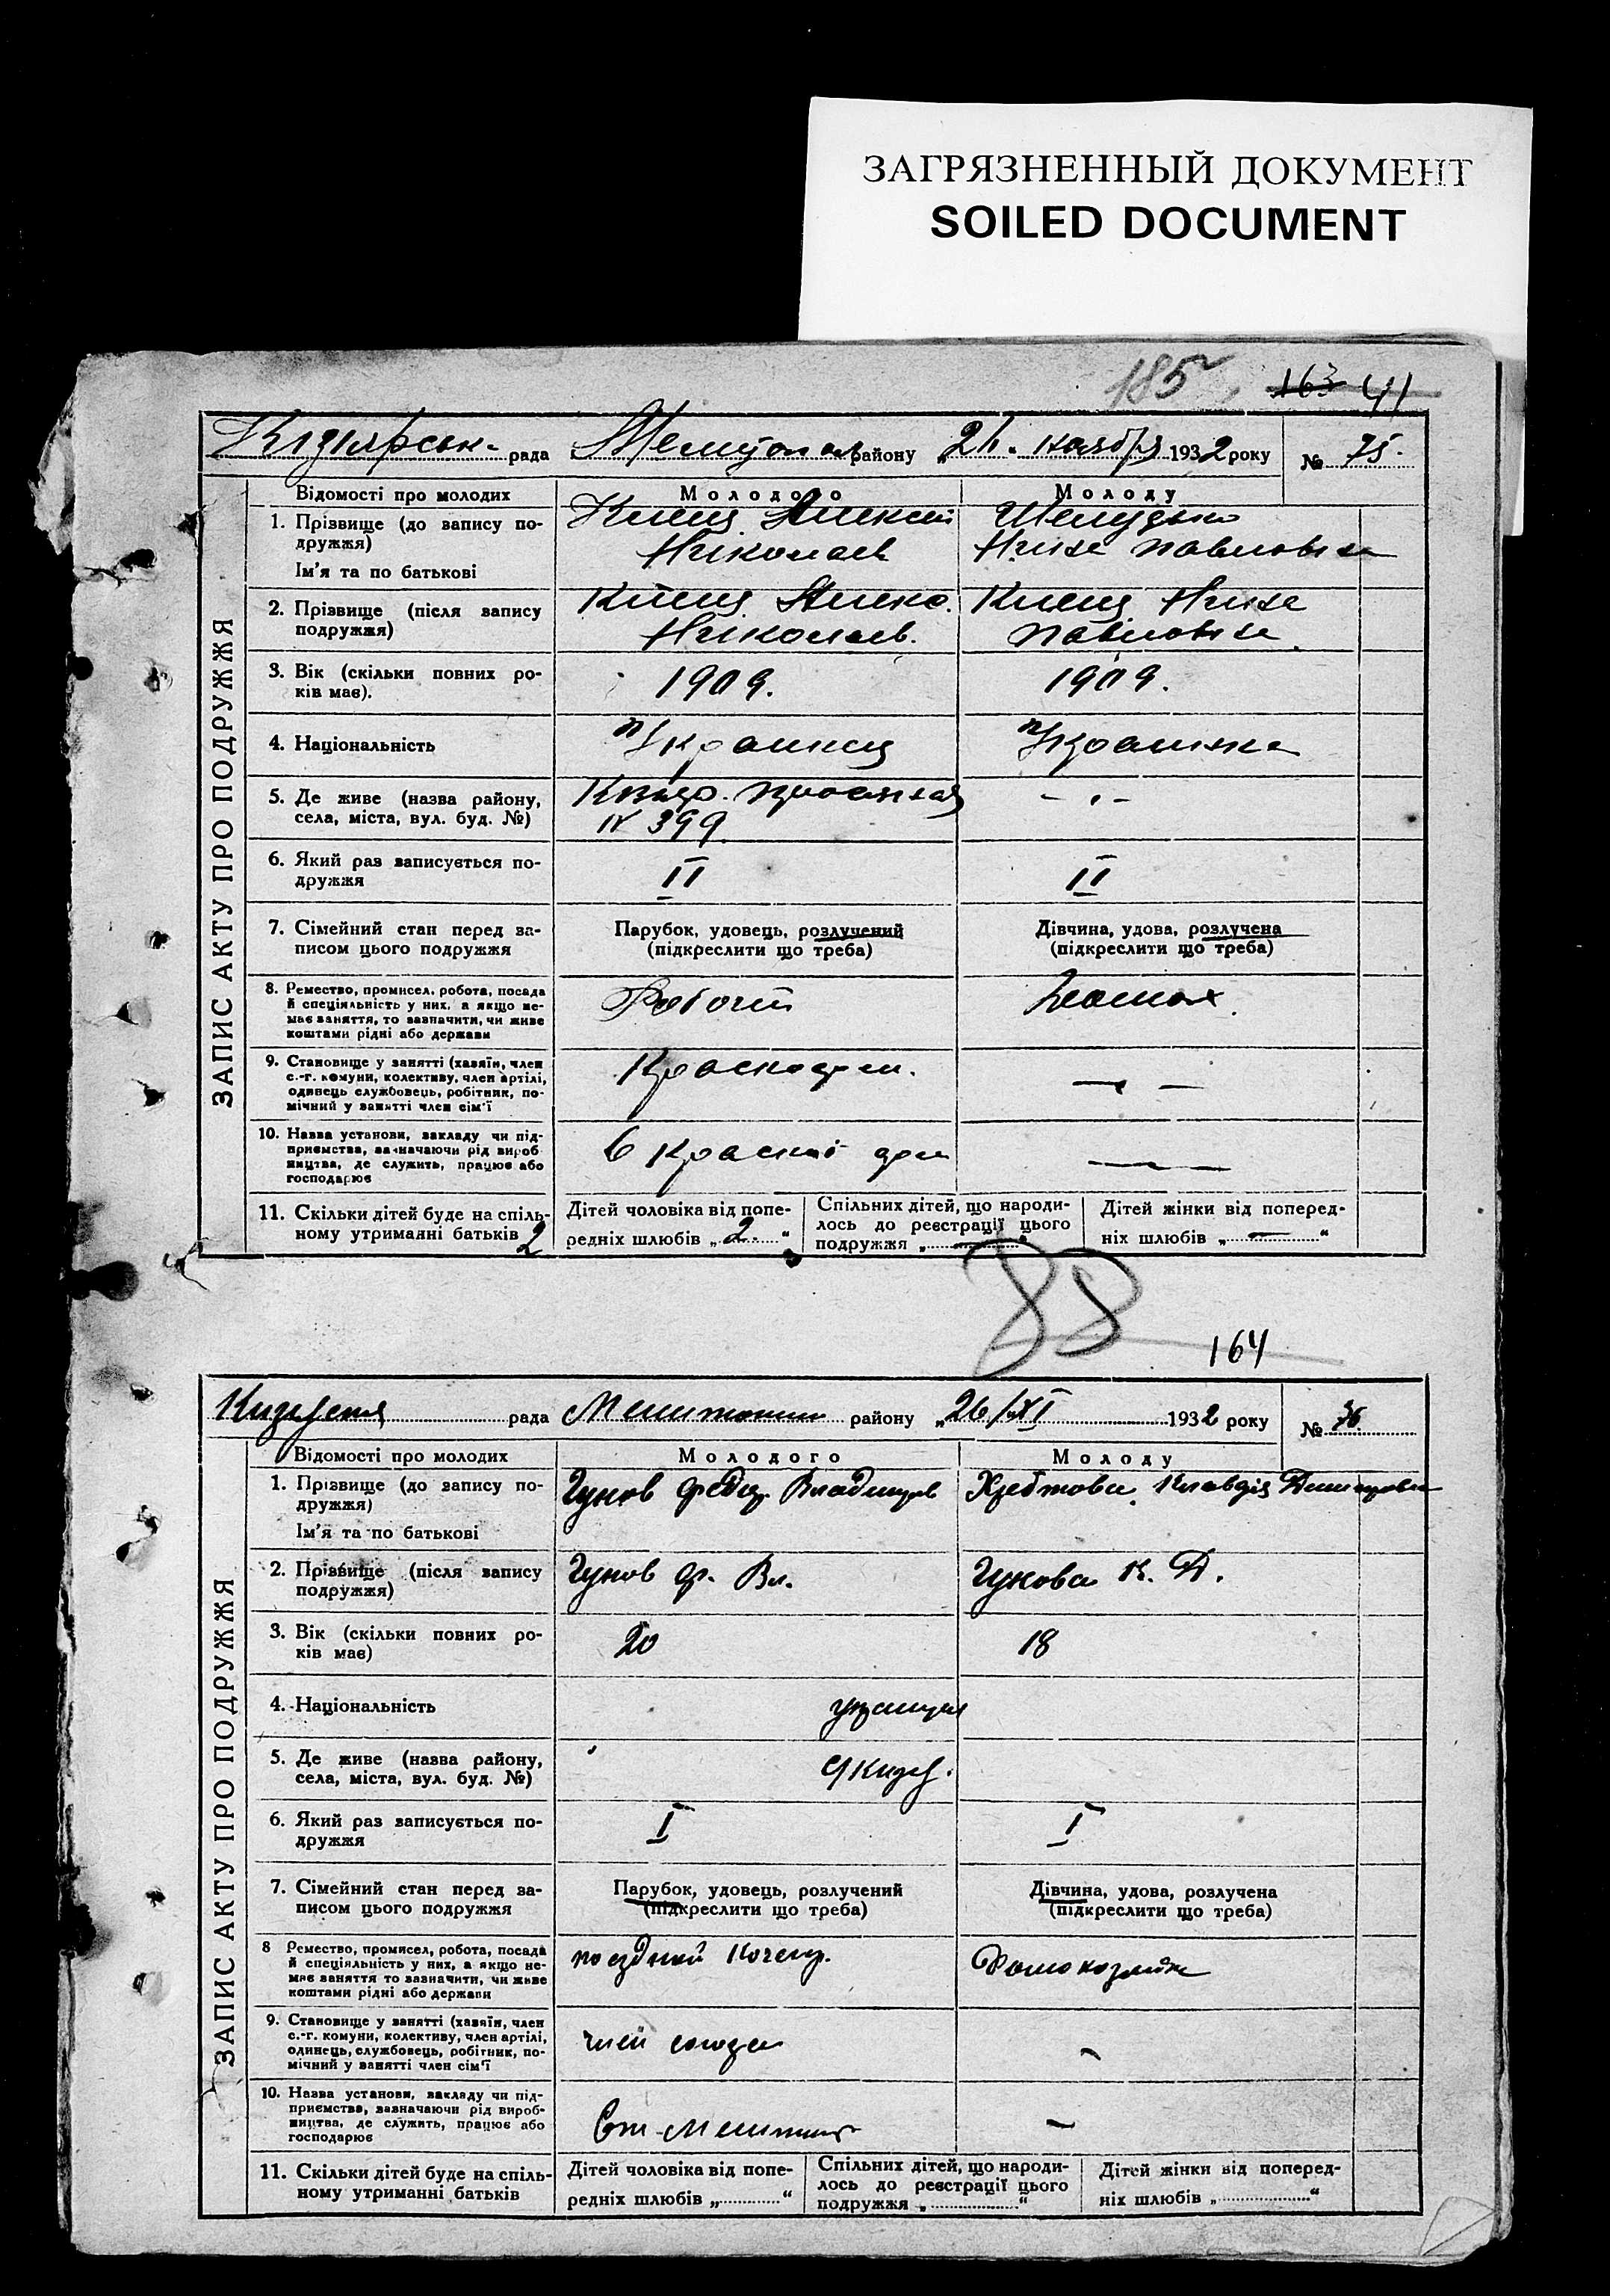 ЗАГРЯЗНЕННЫЙ ДОКУМЕНТ
SOILED DOCUMENT
185
163 41
Кізіярськ. рада район у 193 2 року № 75.
ЗАПИС АКТУ ПРО ПОДРУЖЖЯ
Відомості про молодих Молодого Молоду
1. Прізвище (до запису по-
дружжя)
Ім'я та по батькові
Ніколаев
Павловна
2. Прізвище (після запису
подружжя)
Ніколаев.
Павловна
3. Вік (скільки повних ро-
ків має).
1909. 1909.
4. Національність Украинец Украинка
5. Де живе (назва району,
села, міста, вул. буд. №)
№ 399 - " -
6. Який раз записується по-
дружжя
II II
7. Сімейний стан перед за-
писом цього подружжя
Парубок, удовець, розлучений
(підкреслити що треба)
Дівчина, удова, розлучена
(підкреслити що треба)
8. Ремество, промисел, робота, посада
й спеціяльність у них, а якщо не-
має заняття, то зазначити, чи живе
коштами рідні або держави
Рабочий
9. Становище у занятті (хазяїн, член
с.-г. комуни, колективу, член артілі,
одинець службовець, робітник, по-
мічний у занятті член сім'ї
—
10. Назва установи, закладу чи під-
приємства, зазначаючи рід вироб
ництва, де служить, працює або
господарює
—
11. Скільки дітей буде на спіль-
ному утриманні батьків 2
Дітей чоловіка від попе-
редніх шлюбів „ 2. “
Спільних дітей, що народи-
лось до реєстрації цього
подружжя „ — “
Дітей жінки від поперед-
ніх шлюбів „ — “
88
164
рада району „26/XI 193 2 року № 76.
ЗАПИС АКТУ ПРО ПОДРУЖЖЯ
Відомості про молодих Молодого Молоду
1. Прізвище (до запису по-
дружжя)
Ім'я та по батькові
Федор Владимиров
Хребтова Клавдія
2. Прізвище (після запису
подружжя)
Ф. Вл.
К. Д.
3. Вік (скільки повних ро-
ків має)
20 18
4. Національність
5. Де живе (назва району,
села, міста, вул. буд. №)
6. Який раз записується по-
дружжя
I I
7. Сімейний стан перед за-
писом цього подружжя
Парубок, удовець, розлучений
(підкреслити що треба)
Дівчина, удова, розлучена
(підкреслити що треба)
8 Ремество, промисел, робота, посада
й спеціяльність у них, а якщо не-
має заняття то зазначити, чи живе
коштами рідні або держави
поездной кочегар.
Домохозяйка
9. Становище у занятті (хазяїн, член
с.-г. комуни, колективу, член артілі,
одинець, службовець, робітник, по-
мічний у занятті член сім'ї
член союза
-
10. Назва установи, закладу чи під-
приємства, зазначаючи рід вироб-
ництва, де служить, працює або
господарює
-
11. Скільки дітей буде на спіль-
ному утриманні батьків
Дітей чоловіка від попе-
редніх шлюбів „ “
Спільних дітей, що народи-
лось до реєстрації цього
подружжя „ “
Дітей жінки від поперед-
ніх шлюбів „ “